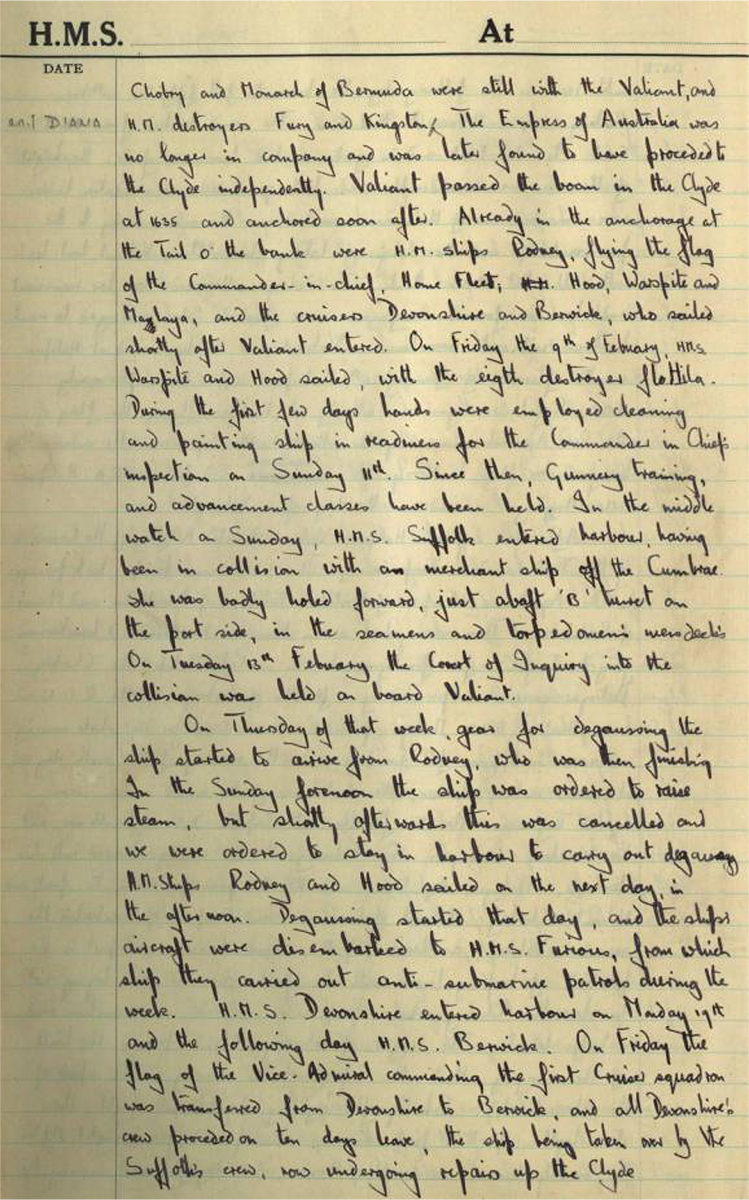 H.M.S. At
DATE
Chobry and Monarch of Bermuda were still with the Valiant, and
and DIANA
H.M. destroyers Fury and Kingston. The Empress of Australia was
no longer in company and was later found to have proceded to
the Clyde independently. Valiant passed the boom in the Clyde
at 1635 and anchored soon after. Already in the anchorage at
the Tail o' the bank were H.M. ships Rodney, flying the flag
of the Commander-in-chief, Home Fleet, H.M. Hood, Warspite and
Maylaya, and the cruisers Devonshire and Berwick, who sailed
shortly after Valiant entered. On Friday the 9th of Febuary, HMS.
Warspite and Hood sailed, with the eigth destroyer flottila.
During the first few days hands were employed cleaning
and painting ship in readiness for the Commander in Chief's
inspection on Sunday 11th. Since then, Gunnery training,
and advancement classes have been held. In the middle
watch on Sunday, H.M.S. Suffolk entered harbour, having
been in collision with a merchant ship off the Cumbrae.
She was badly holed forward, just abaft 'B' turret on
the port side, in the seamens and torpedomen's messdecks
On Tuesday 13th Febuary the Court of Inquiry into the
collision was held on board Valiant.
On Thursday of that week, gear for degaussing the
ship started to arrive from Rodney, who was then finishing
In the Sunday forenoon the ship was ordered to raise
steam, but shortly afterwards this was cancelled and
we were ordered to stay in harbour to carry out degaussing
H.M. Ships Rodney and Hood sailed on the next day, in
the afternoon. Degaussing started that day, and the ship's
aircraft were disembarked to H.M.S. Furious, from which
ship they carried out anti-submarine patrols during the
week. H.M.S. Devonshire entered harbour on Monday 19th
and the following day H.M.S. Berwick. On Friday the
flag of the Vice-Admiral commanding the first Cruiser squadron
was transferred from Devonshire to Berwick, and all Devonshire's
crew proceded on ten days leave, the ship being taken over by the
Suffolk's crew, now undergoing repairs up the Clyde